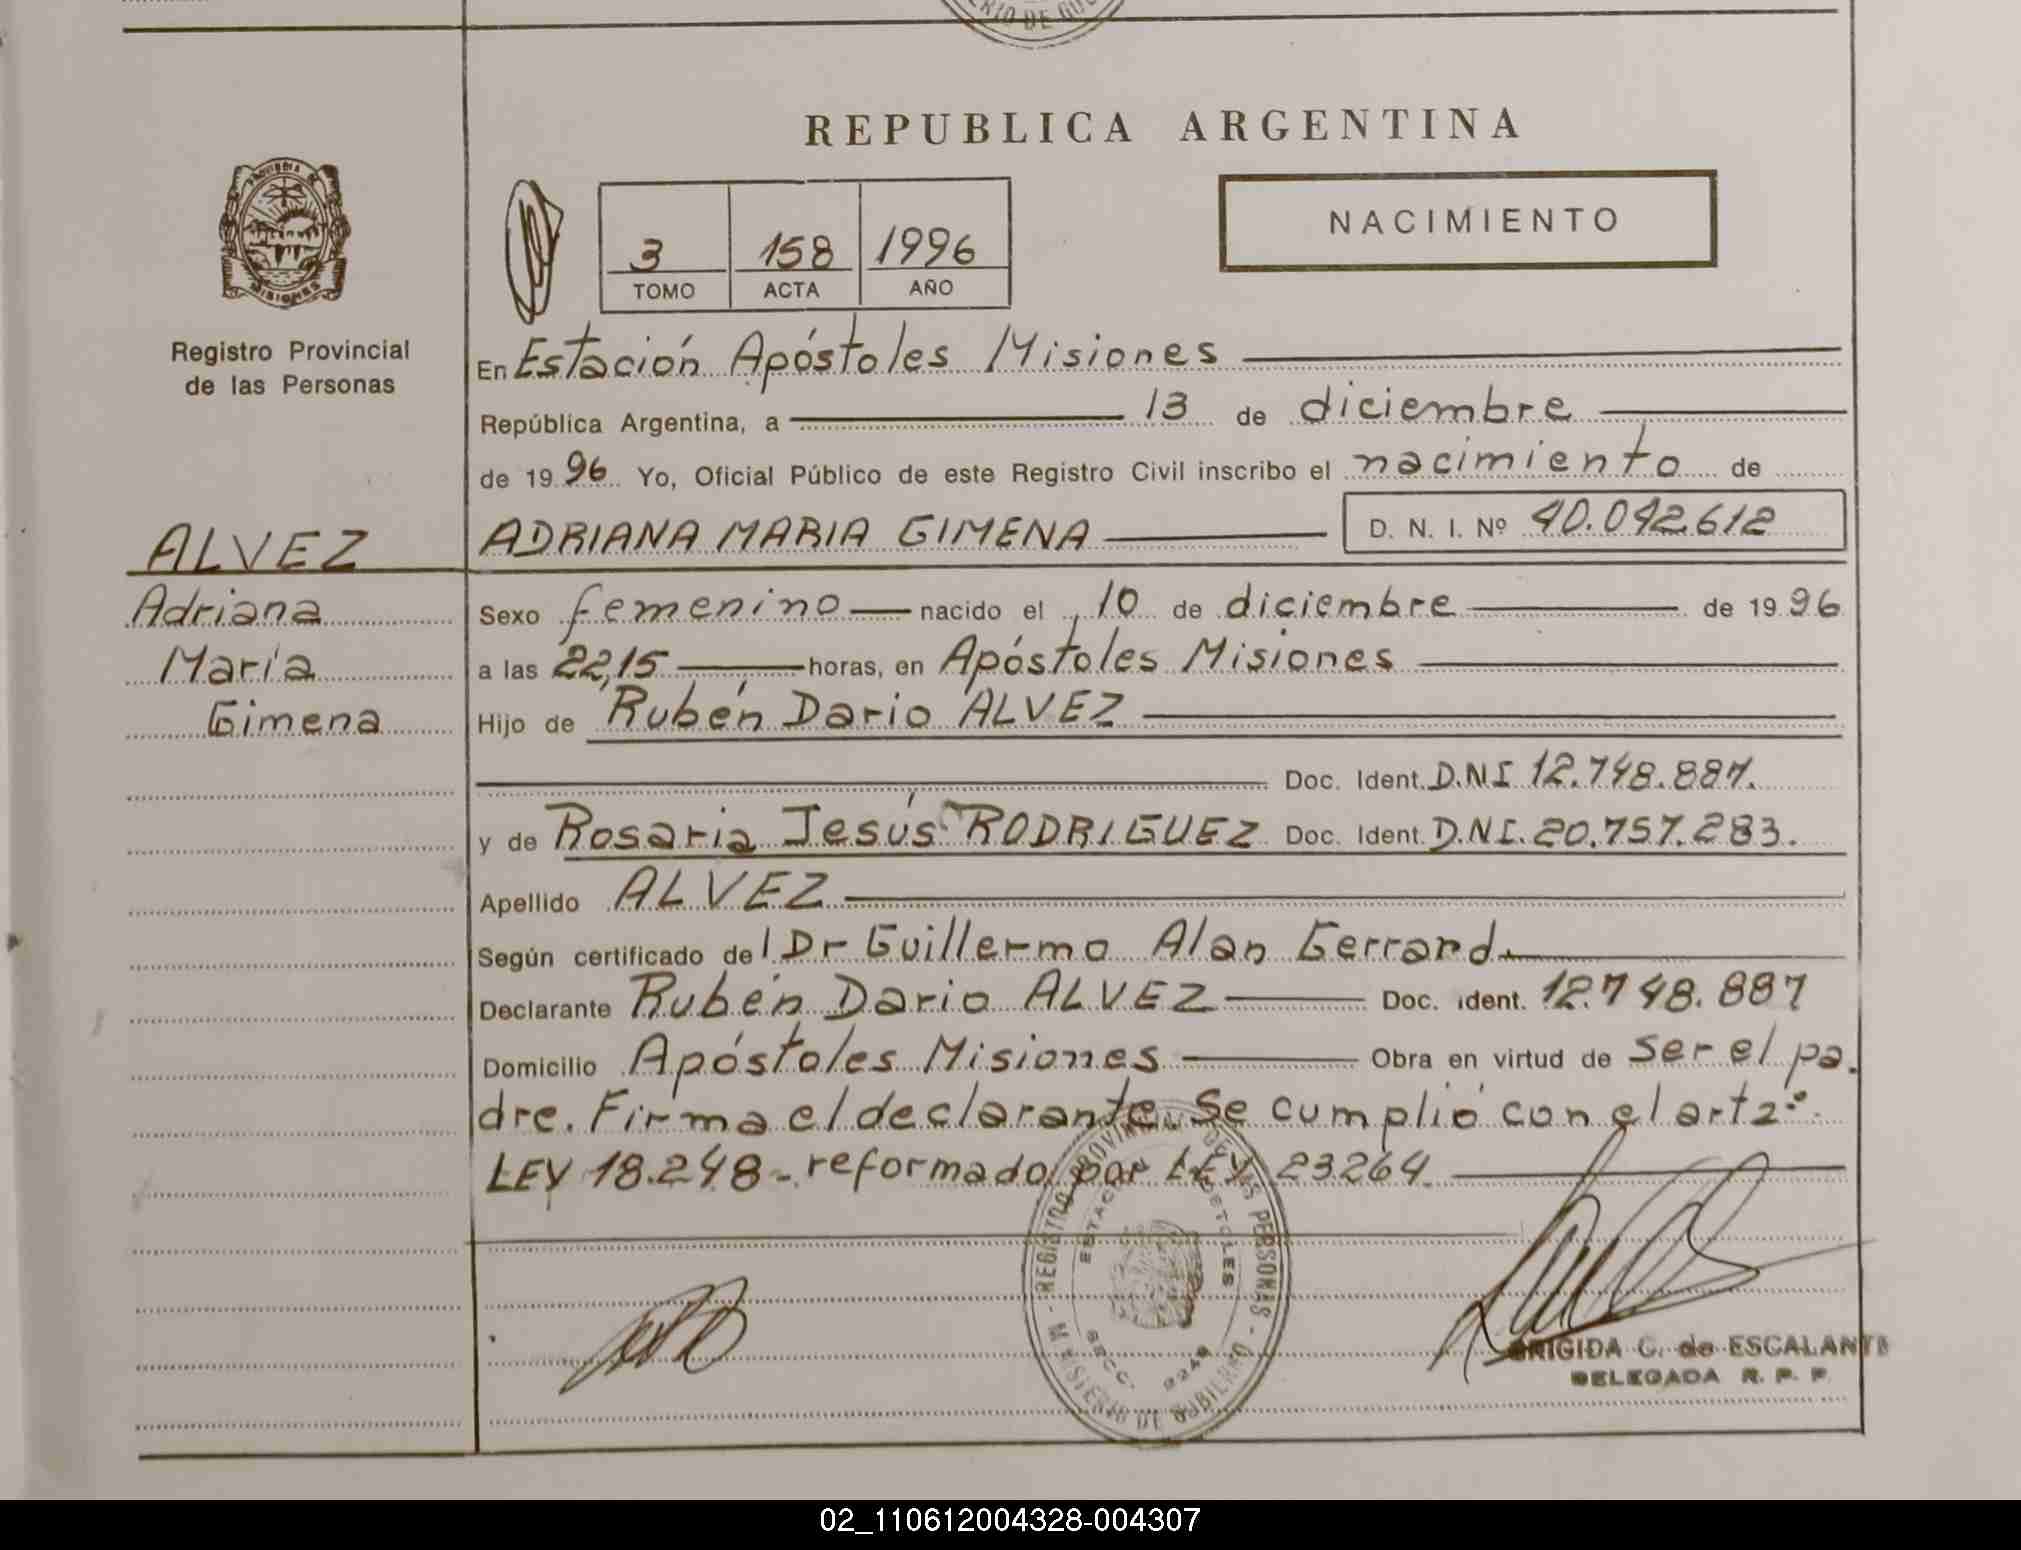 REPUBLICA ARGENTINA
PROVINCIA DE MISIONES
Registro Provincial
de las Personas
3 158 1996
TOMO ACTA AÑO
NACIMIENTO
En Estación Apóstoles Misiones
República Argentina, a 13 de diciembre
de 1996 Yo, Oficial Público de este Registro Civil inscribo el nacimiento de
ALVEZ
Adriana
María
Gimena
ADRIANA MARIA GIMENA D. N. I. Nº 40.042.612
Sexo femenino nacido el 10 de diciembre de 1996
a las 22,15 horas, en Apóstoles Misiones
Hijo de Rubén Dario ALVEZ
Doc. Ident. D.NI 12.748.887.
y de Rosaria Jesús RODRIGUEZ Doc. Ident. D.NI. 20.757.283.
Apellido ALVEZ
Según certificado de Dr Guillermo Alan Gerrard.
Declarante Rubén Dario ALVEZ Doc. Ident. 12.748.887
Domicilio Apóstoles Misiones Obra en virtud de ser el pa.
dre. Firma el declarante. Se cumplió con el art 2º.
LEY 18.248 - reformado por LEY 23264.
REGISTRO PROVINCIAL DE LAS PERSONAS - MINISTERIO DE GOBIERNO -
ESTACION APOSTOLES
SECC.
BRIGIDA C. de ESCALANTE
DELEGADA R. P. P.
02_110612004328-004307